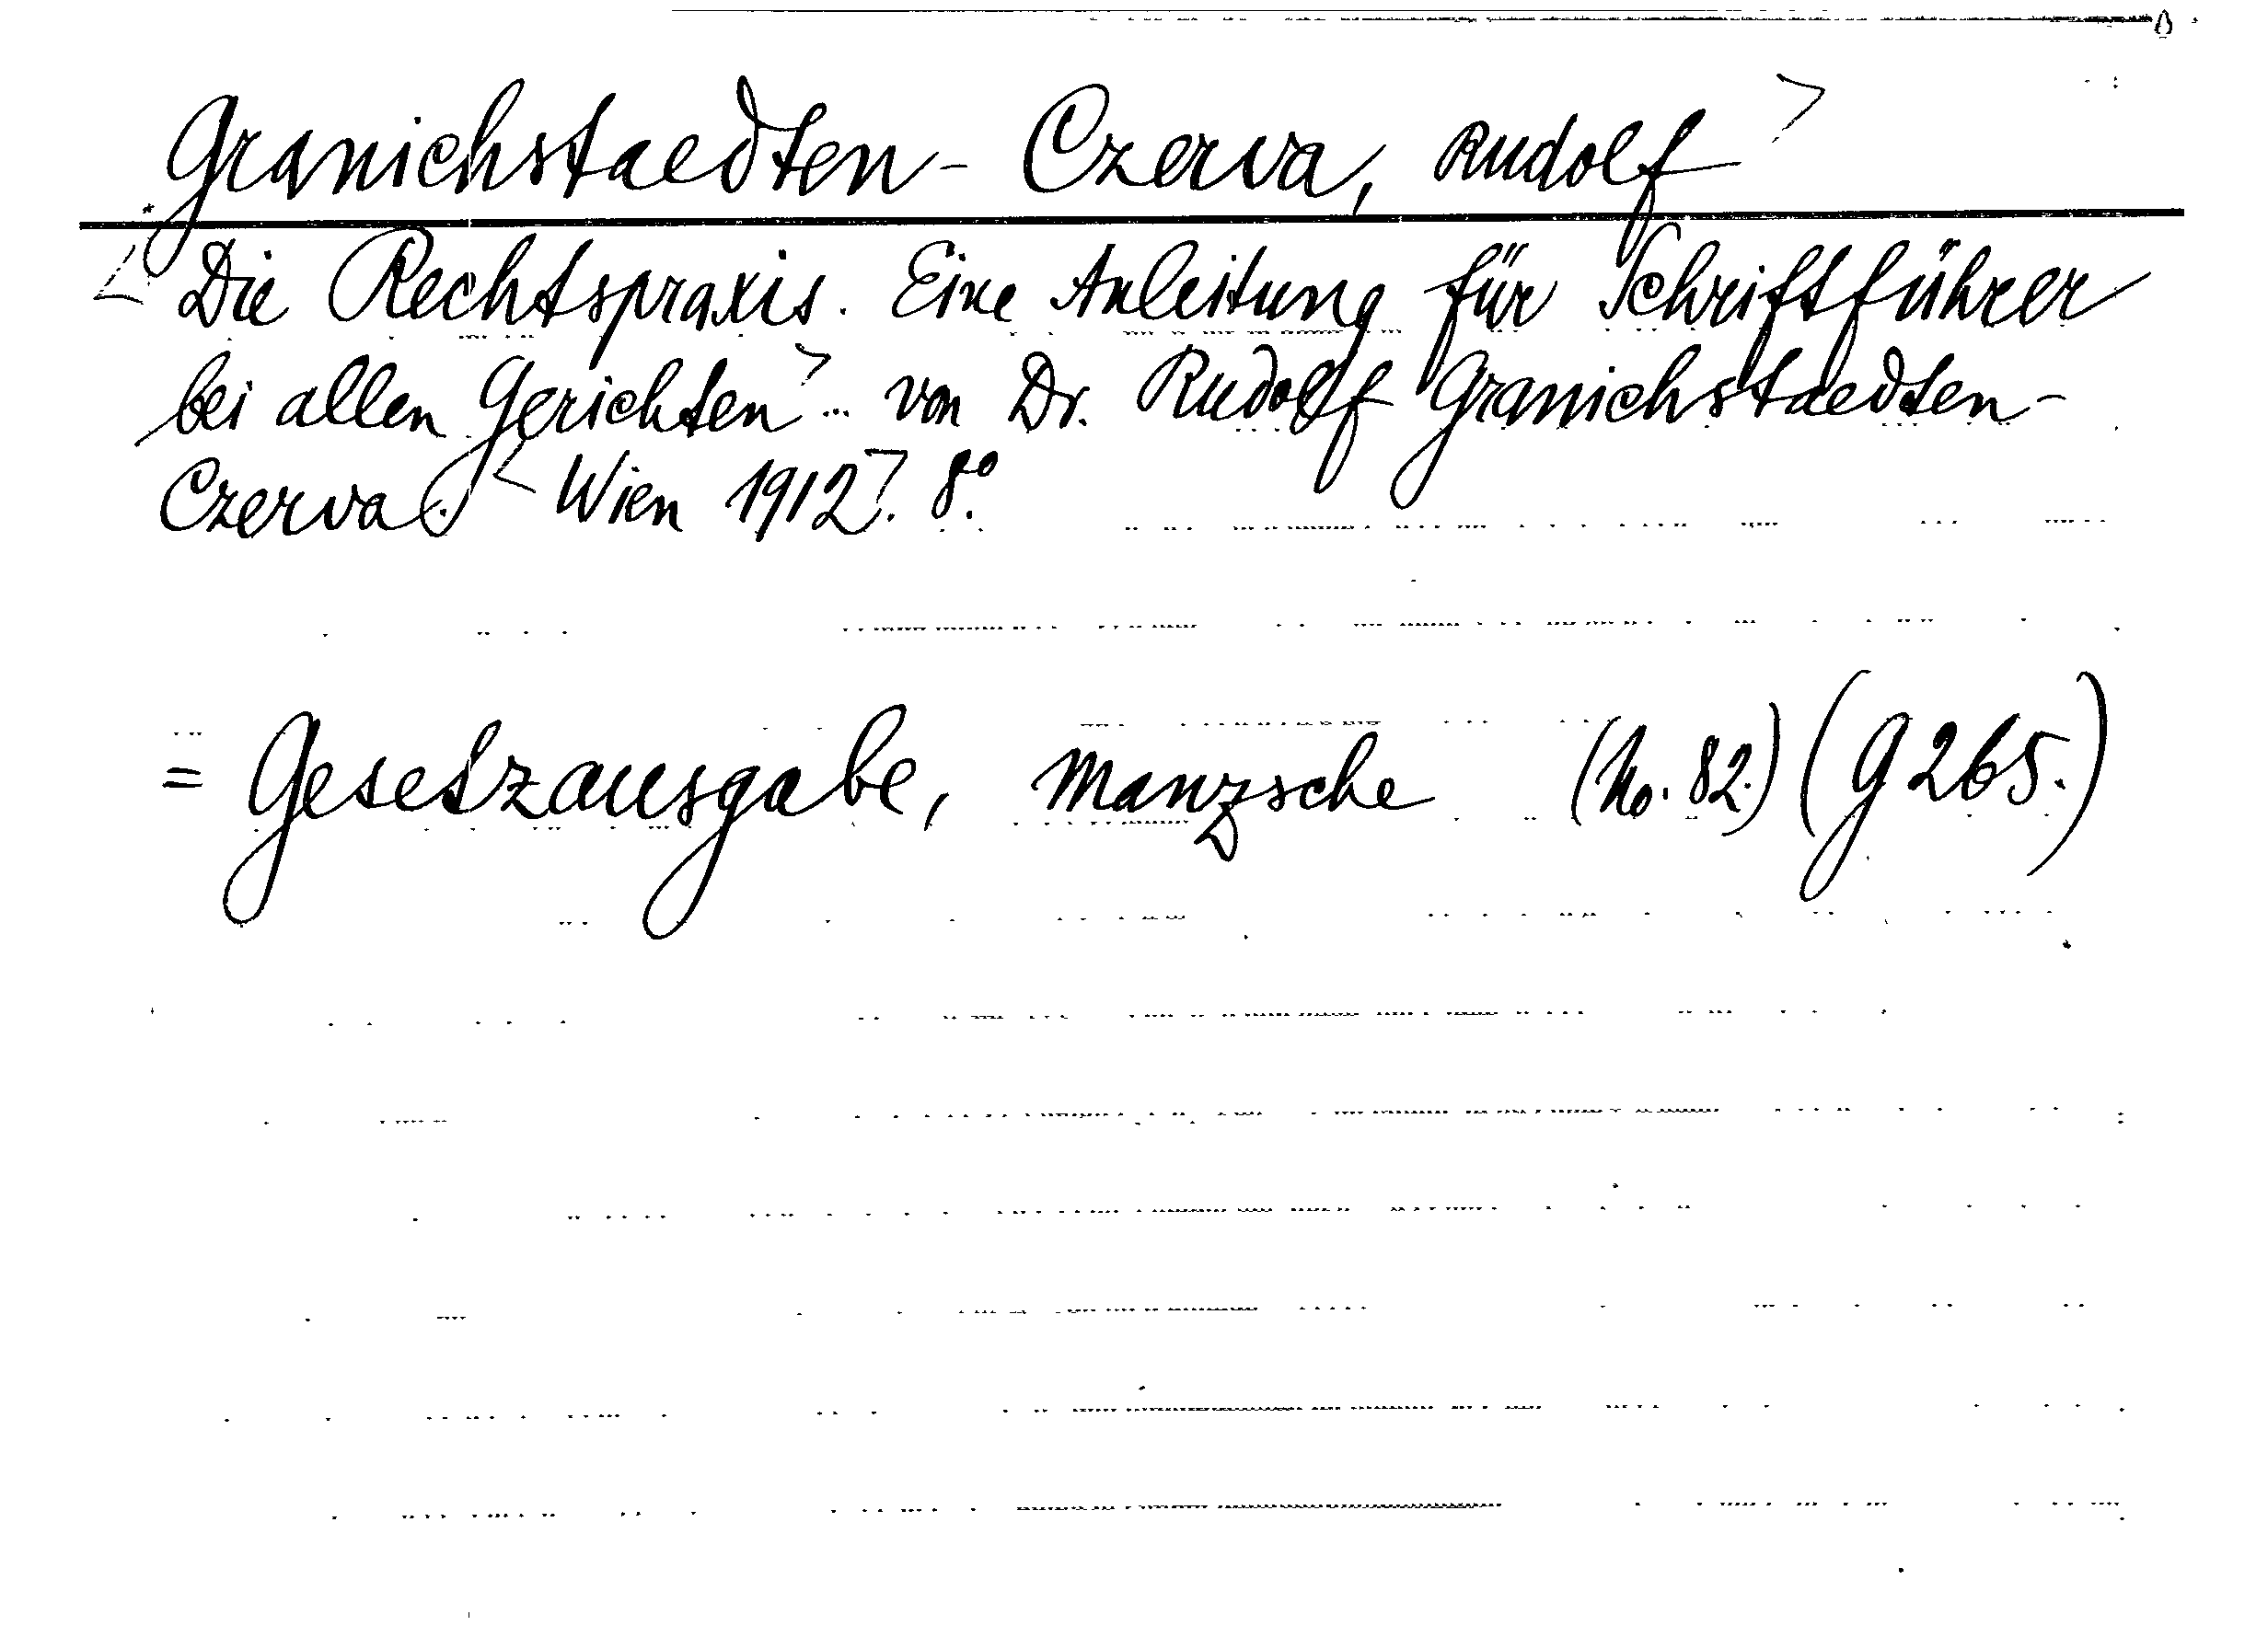 Granichstaedten-Czerva, Rudolf
Die Rechtspraxis. Eine Anleitung für Schriftführer
bei allen Gerichten ... von Dr. Rudolf Granichstaedten-
Czerva. Wien 1912. 8º.
= Gesetzausgabe, Manzsche (No. 82.) (G 265.)